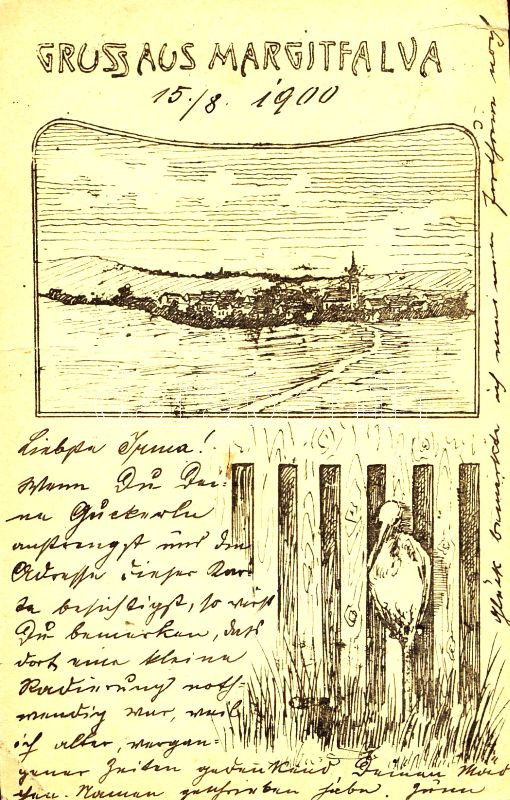 GRUSS AUS MARGITFALVA
15./8. 1900
Liebste Irma!
Wenn Du Dei-
ne Guckerln
anstrengst und die
Adresse dieser Kar-
te besichtigst, so wirst
Du bemerken, daß
dort eine kleine
Radierung noth-
wendig war, weil
ich alter, vergan-
gener Zeiten gedenkend Deinen Mäd
chen-Namen geschrieben habe. Zum
Glück bemerkte ich